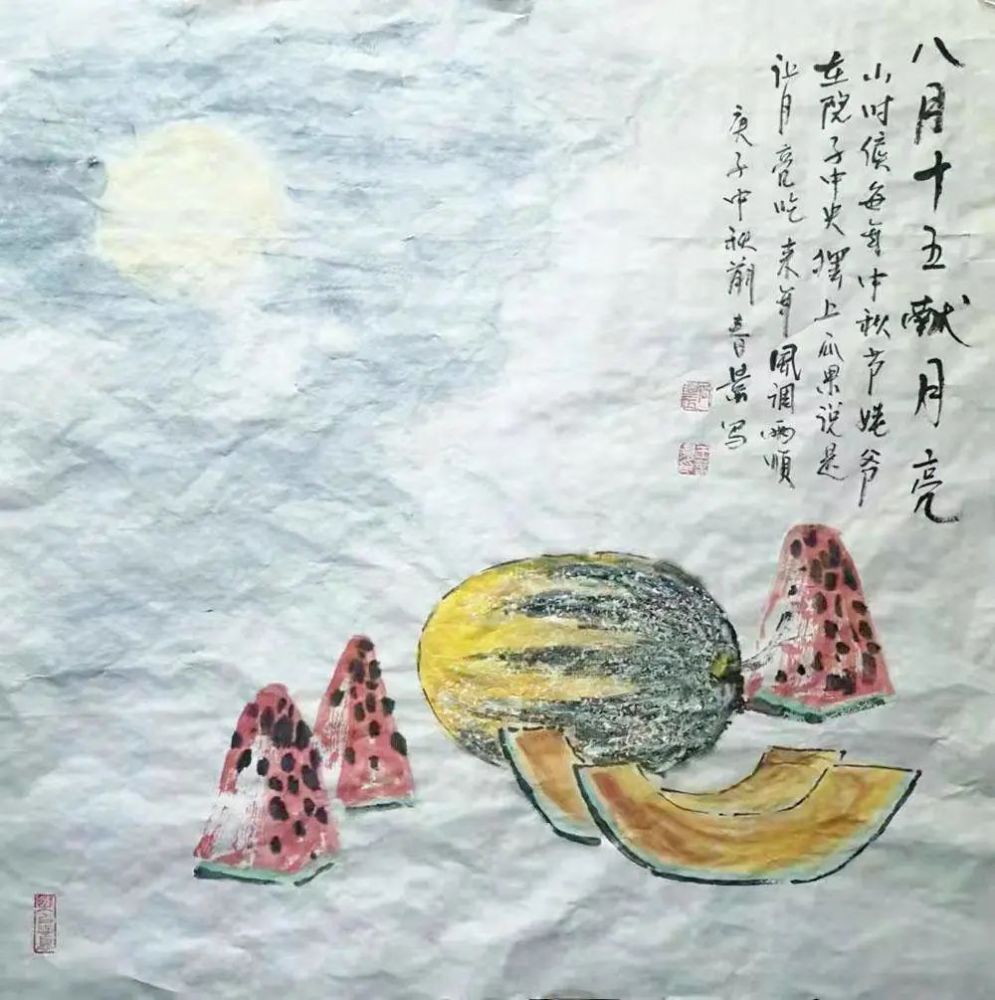 八月十五献月亮
小时侯每年中秋节姥爷
在院子中央摆上瓜果说是
让月亮吃来年风调雨顺
庚子中秋前青景写